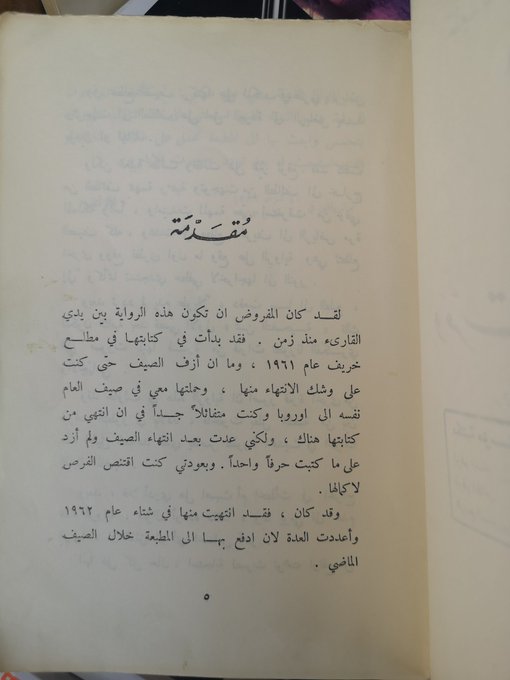 مُقَدِّمَة
لقد كان المفروض ان تكون هذه الرواية بين يدي
القارىء منذ زمن . فقد بدأت في كتابتها في مطالع
خريف عام ١٩٦١ ، وما ان أزف الصيف حتى كنت
على وشك الانتهاء منها ، وحملتها معي في صيف العام
نفسه الى اوروبا وكنت متفائلاً جداً في ان انتهي من
كتابتها هناك ، ولكني عدت بعد انتهاء الصيف ولم أزد
على ما كتبت حرفاً واحداً . وبعودتي كنت اقتنص الفرص
لاكمالها .
وقد كان ، فقد انتهيت منها في شتاء عام ١٩٦٢
وأعددت العدة لان ادفع بها الى المطبعة خلال الصيف
الماضي .
٥